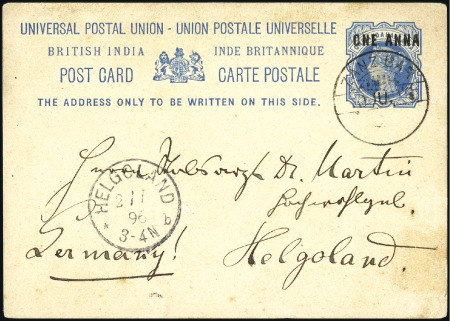 UNIVERSAL POSTAL UNION - UNION POSTALE UNIVERSELLE
BRITISH INDIA INDE BRITANNIQUE
POST CARD CARTE POSTALE
THE ADDRESS ONLY TO BE WRITTEN ON THIS SIDE.
ONE ANNA
Herrn Dr. Martin
Hochwohlgeb
Helgoland
Germany!
HELGOLAND
96
3-4N